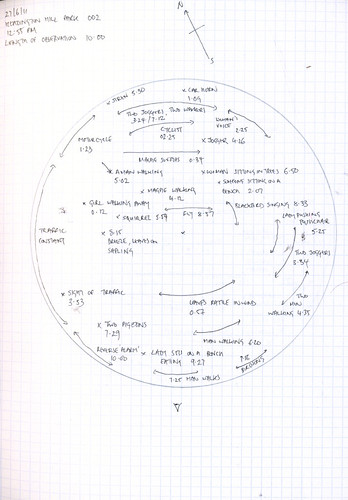 27/6/11
HEADINGTON HILL PARK 002
12:55 PM
LENGTH OF OBSERVATION 10:00
N
S
x SIREN 5:50
x CAR HORN
1:09
TWO JOGGERS, TWO WALKERS
3:24 / 7:12
CYCLIST
02:25
WOMAN'S
VOICE
2:25
MOTORCYCLE
1:23
x JOGGER 4:26
MAGPIE SWOOPS 0:39
x A MAN WALKING
5:02
x WOMAN SITTING ON STEPS 6:50
x SOMEONE SITTING ON A
BENCH 2:07
x MAGPIE WALKING
4:12
x GIRL WALKING AWAY
0:12
x SQUIRREL
FLY 8:57
BLACKBIRD SINGING 8:33
LADY PUSHING
PUSHCHAIR
5:25
TRAFFIC
CONSTANT
x 8:15
LEAVES ON
SAPLING
x
TWO JOGGERS
3:34
x SIGHT OF TRAFFIC
3:53
LEAVES RATTLE IN WIND
0:57
TWO
MEN
WALKING 4:35
x TWO PIGEONS
7:29
MAN WALKING 6:20
'REVERSE ALARM'
10:00
x LADY SITS ON A BENCH
EATING 9:27
7:25 MAN WALKS